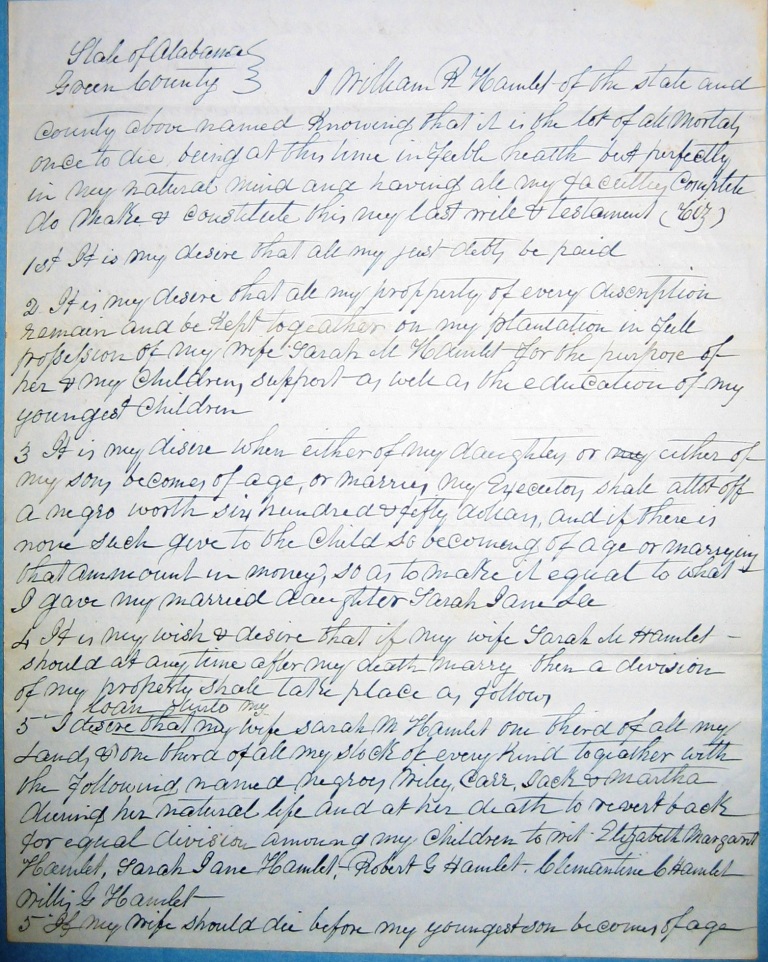 State of Alabama
Green County } I William R Hamlet of the state and
County above named Knowing that it is the lot of all Mortals
once to die, being at this time in feeble health but perfectly
in my natural mind and having all my facultys Complete
do Make & Constitute this my last will & testament (Viz)
1st It is my desire that all my just debts be paid
2 It is my desire that all my propperty of every discription
remain and be Kept togeather on my plantation in full
possession of my wife Sarah M Hamlet for the purpose of
her & my Childrens support as well as the education of my
youngest Children
3 It is my disire when either of my daughters or my either of
my sons becomes of age, or marries my Executors shall allot off
a negro worth six hundred & fifty dollars, and if there is
none such give to the Child so becomeing of age or marrying
that ammount in money, so as to make it equal to what
I gave my married daughter Sarah Jane Lee
4 It is my wish & desire that if my wife Sarah M Hamlet -
should at any time after my death marry then a division
of my property shall take place as follows
loan unto my
5 I desire that my wife Sarah M Hamlet one third of all my
Lands & one third of all my stock of every Kind togeather with
the following named negroes Wiley, Carr, Jack & Martha
dureing her natural life and at her death to revert back
for equal division amoung my Children to wit. Elizabeth Margaret
Hamlet, Sarah Jane Hamlet, Robert G Hamlet. Clemantine C Hamlet
Willis G Hamlet
5 If my wife should die before my youngest son becomes of age